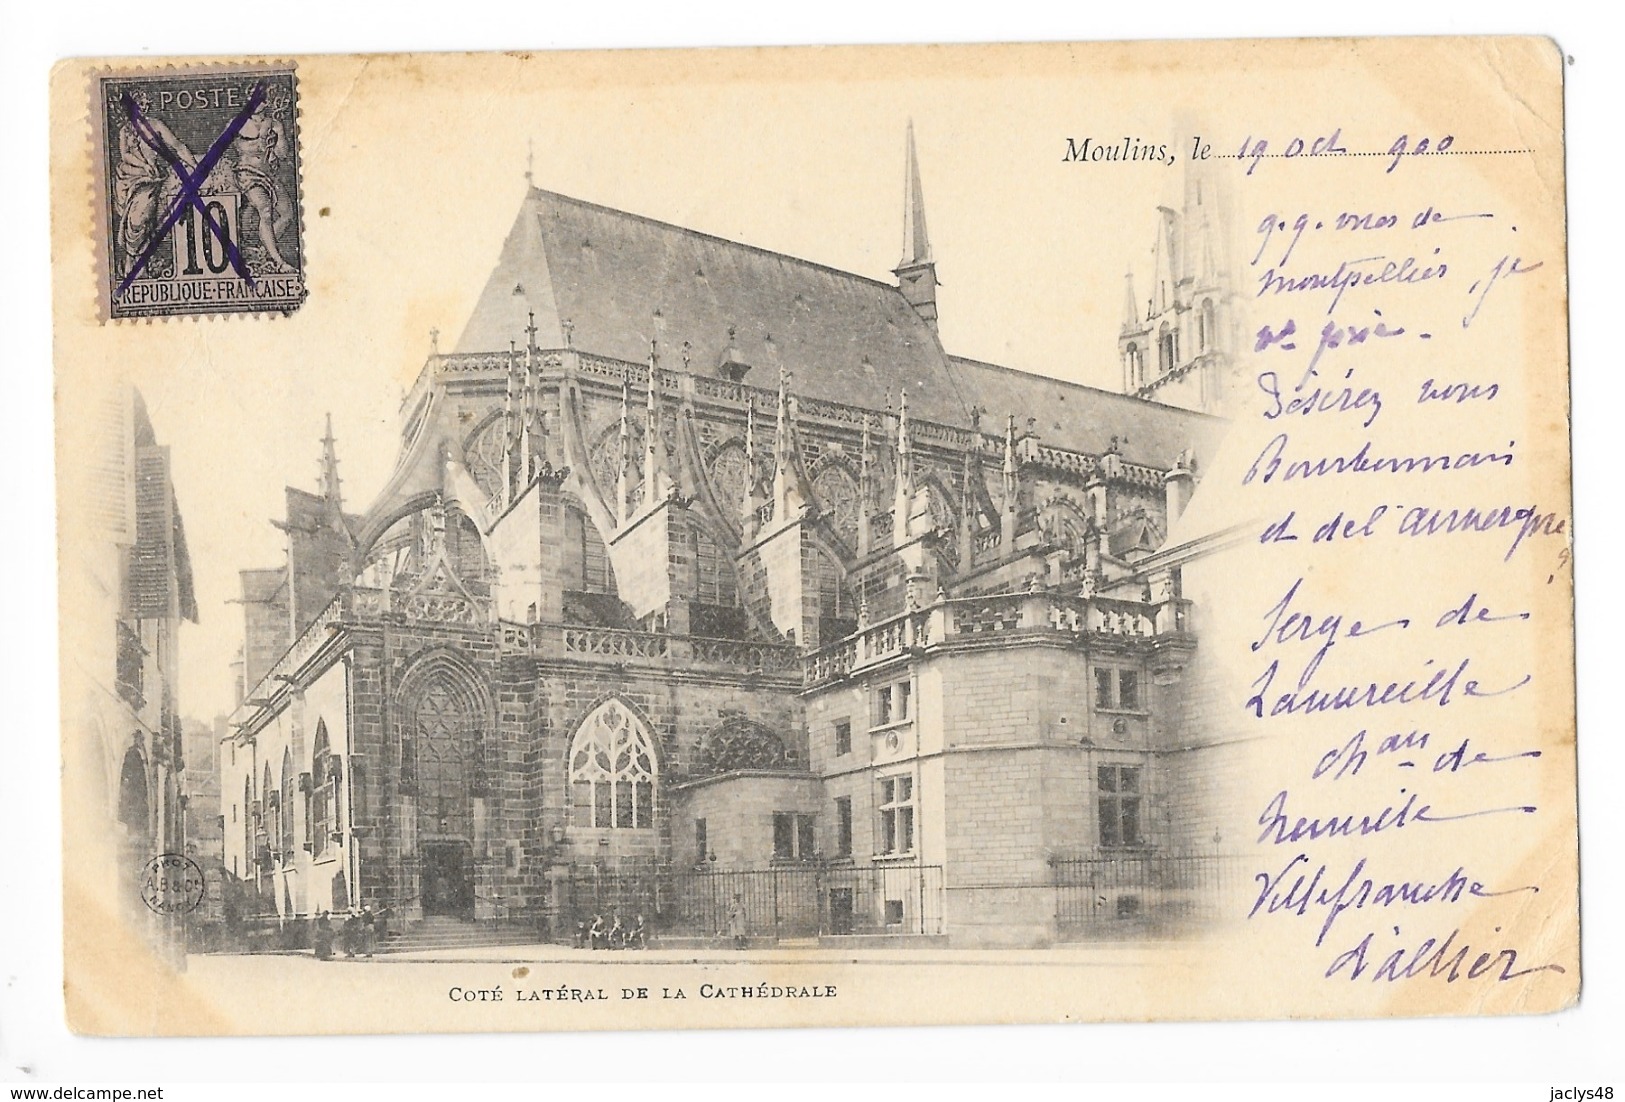 POSTE
10
REPUBLIQUE·FRANÇAISE
Moulins, le 19 oct 900
q.q. vues de
montpellier, je
vs prie.
Désirez vous
Bourbonnais
et de l'auvergne
?
Serge de
Laqureille
chau de
Villefranche
d'allier
PHOT
A.B & Cie
NANCY
COTÉ LATÉRAL DE LA CATHÉDRALE
delcampe.net
jaclys48